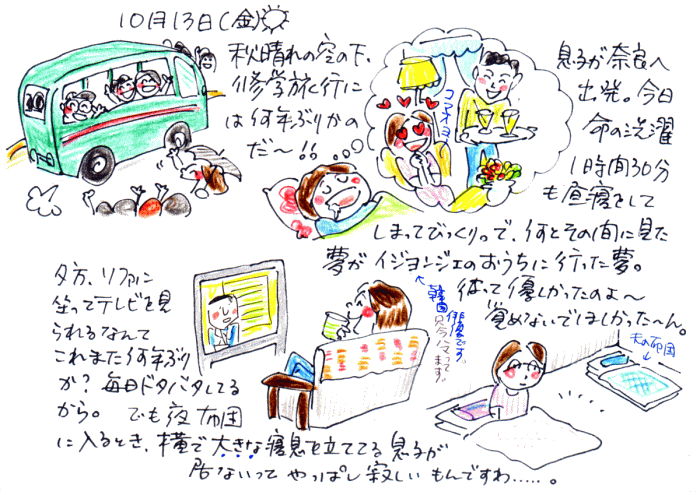 10月13日(金)
秋晴れの空の下、
修学旅行に
は何年ぶりかの
だ〜!!
コマネヨ
息子が奈良へ
出発。今日
命の洗濯
1時間30分
も昼寝をして
しまってびっくりっで、何とその間に見た
夢がイジョンジェのおうちに行った夢。
彼って優しかったのよ〜
覚めないでほしかった〜ん。
韓国俳優です。
只今ハマってます。
夕方、ソファに
坐ってテレビを見
られるなんて
これまた何年ぶり
か?毎日ドタバタしてる
から。でも夜布団
に入るとき、横で大きな寝息を立ててる息子が
居ないってやっぱし寂しいもんですわ……。
夫の布団